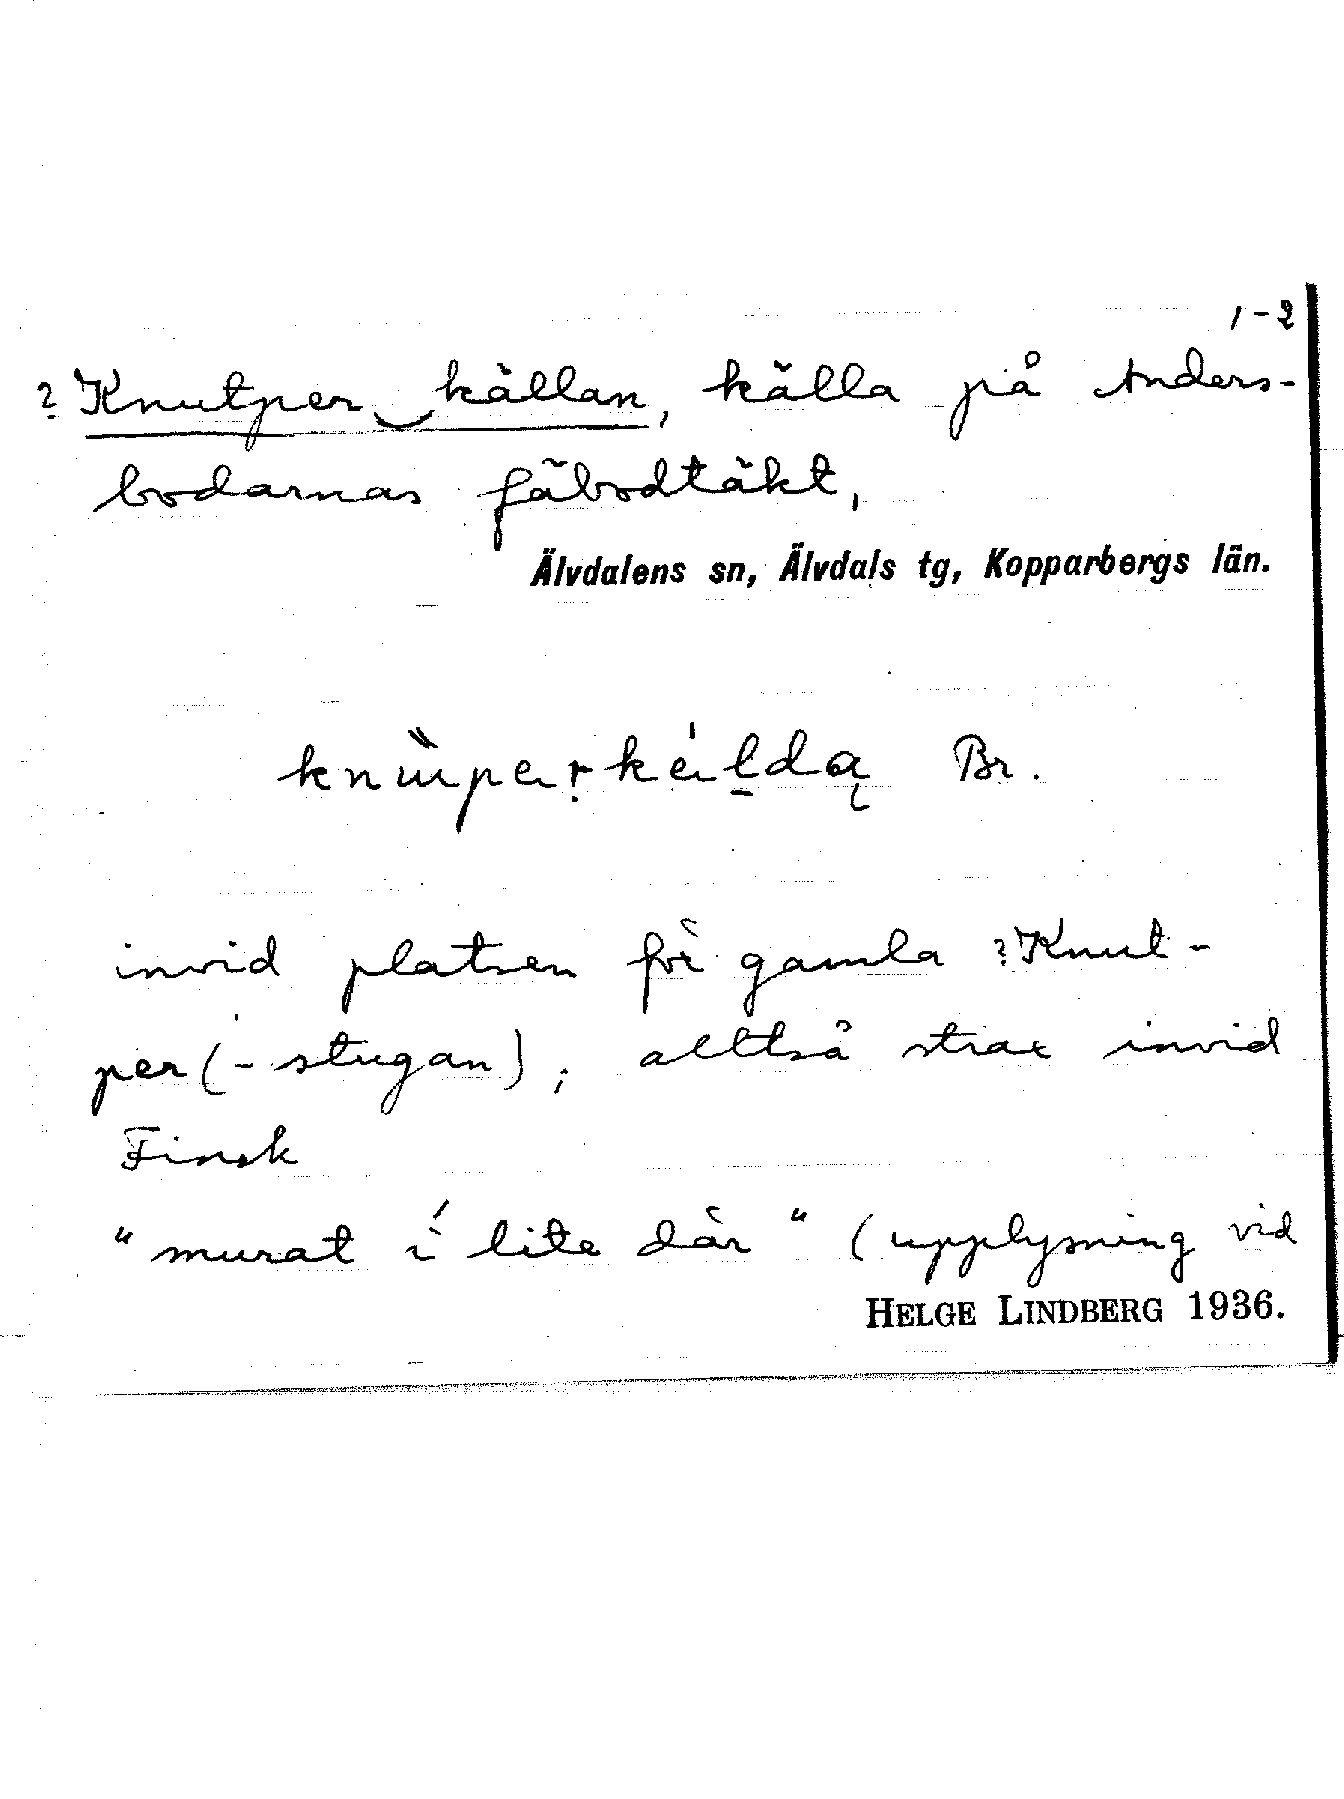 1-2
? Knutper källan, källa på Anders-
bodarnas fäbodtäkt,
Älvdalens sn, Älvdals tg, Kopparbergs län.
Br.
invid platsen för gamla ?Knut-
per(-stugan); alltså strax invid
Finsk
"murat i lite där" (upplysning vid
HELGE LINDBERG 1936.